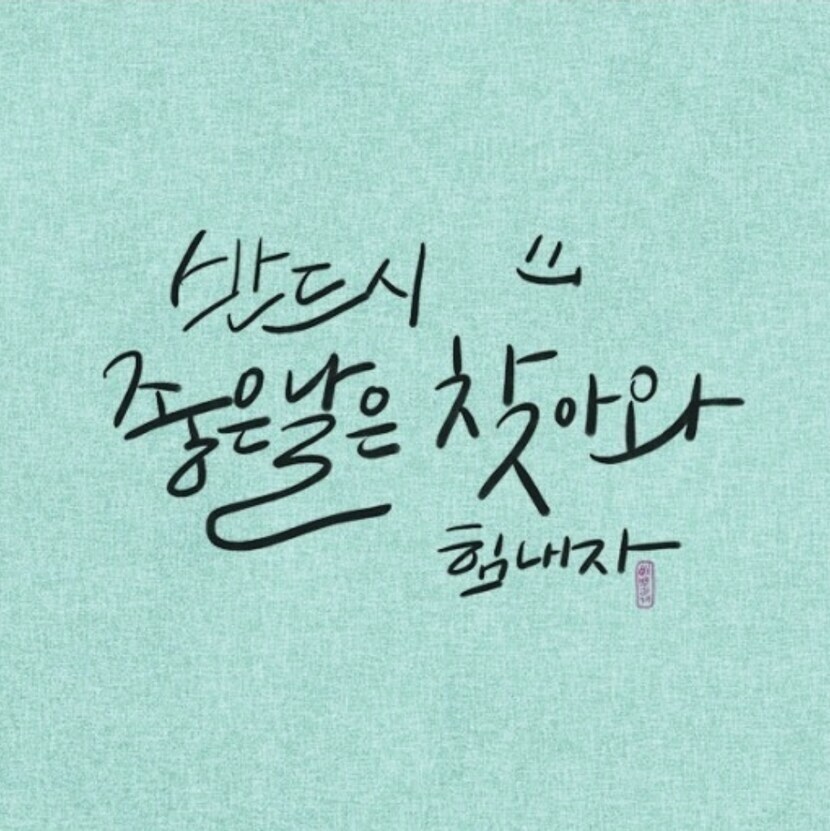 반드시
좋은날은 찾아와
힘내자